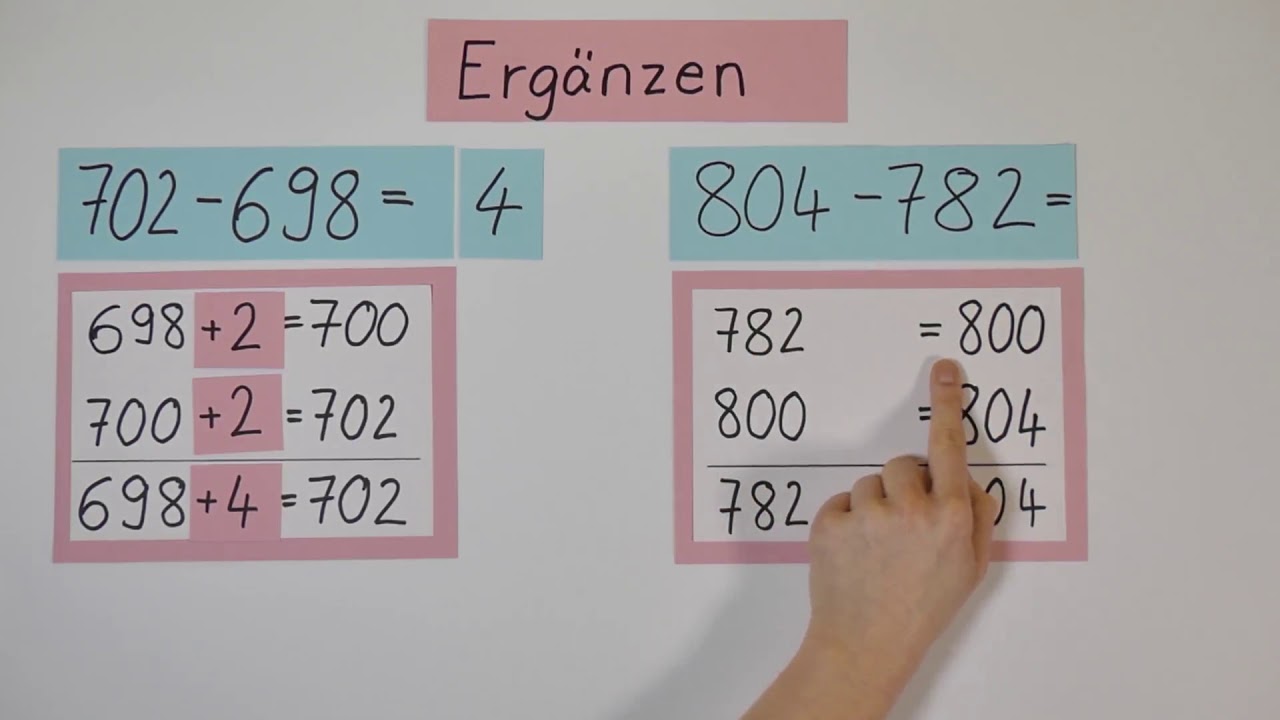 Ergänzen
702 - 698 = 4
698 + 2 = 700
700 + 2 = 702
698 + 4 = 702
804 - 782 =
782 = 800
800 = 804
782 04